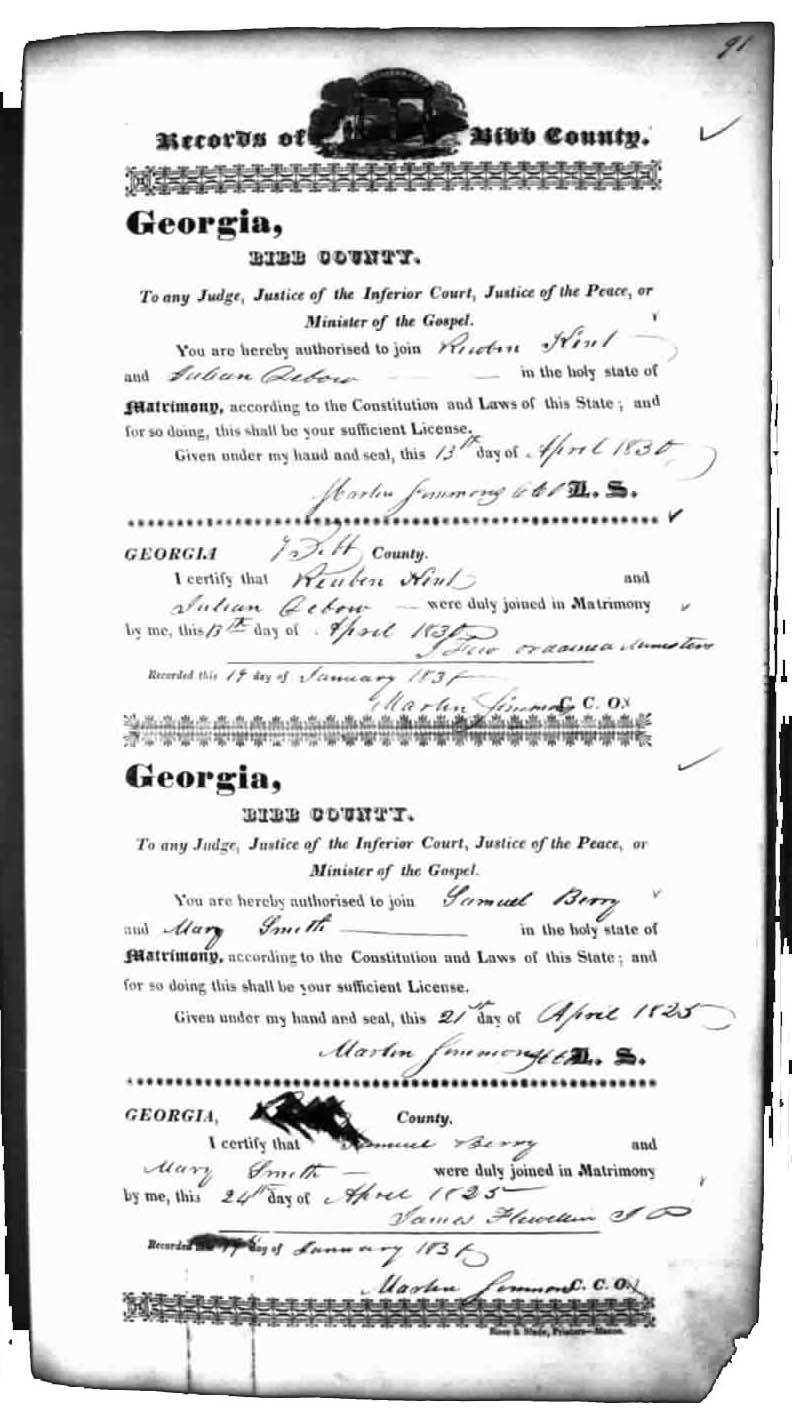 91
Records of Bibb County.
Georgia,
BIBB COUNTY.
To any Judge, Justice of the Inferior Court, Justice of the Peace, or
Minister of the Gospel.
You are hereby authorised to join Reuben Kent
and Julian Debow in the holy state of
Matrimony, according to the Constitution and Laws of this State; and
for so doing, this shall be your sufficient License.
Given under my hand and seal, this 13th day of April
Martin Simmons L. S.
GEORGIA Bibb County.
I certify that Reuben Kent and
Julian Debow were duly joined in Matrimony
by me, this 13th day of April
Few ordained
Recorded this 19 day of January
Martin Simmons C. C. O.
Georgia,
BIBB COUNTY.
To any Judge, Justice of the Inferior Court, Justice of the Peace, or
Minister of the Gospel.
You are hereby authorised to join Samuel Berry
and Mary Smith in the holy state of
Matrimony, according to the Constitution and Laws of this State; and
for so doing this shall be your sufficient License.
Given under my hand and seal, this 21st day of April 1825
Martin Simmons L. S.
GEORGIA, County.
I certify that Samuel Berry and
Mary Smith were duly joined in Matrimony
by me, this 24th day of April 1825
James Flewellin J P
Recorded day of January
Martin Simmons C. C. O.
Rose & Slade, Printers—Macon.